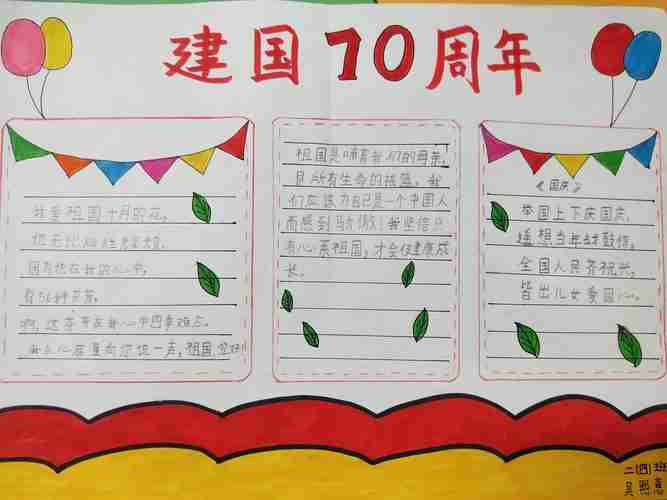 建国70周年
我爱祖国十月的花,
因为他在我的心中,
有56种芬芳。
祖国,您好!
祖国是哺育我们的母亲,
是所有生命的摇篮,我
们应该为自己是一个中国人
而感到骄傲!我坚信只
有心系祖国,才会健康成
长。
《国庆》
举国上下庆国庆,
遥想当年
全国人民齐祝兴,
皆出儿女爱国心。
二(四)班
吴熙